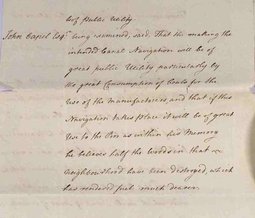 of Public Utility
John Capel Esqr. being examined, said, That the making the
intended Canal Navigation will be
of great public Utility particularly by
the great Consumption of Coals for the
use of the manufacturers, and that if this
Navigation takes place it will be of great
Use to the Poor as within his Memory
he believes half the Woods in that
neighbourhood have been destroyed, which
has rendered fuel much dearer.